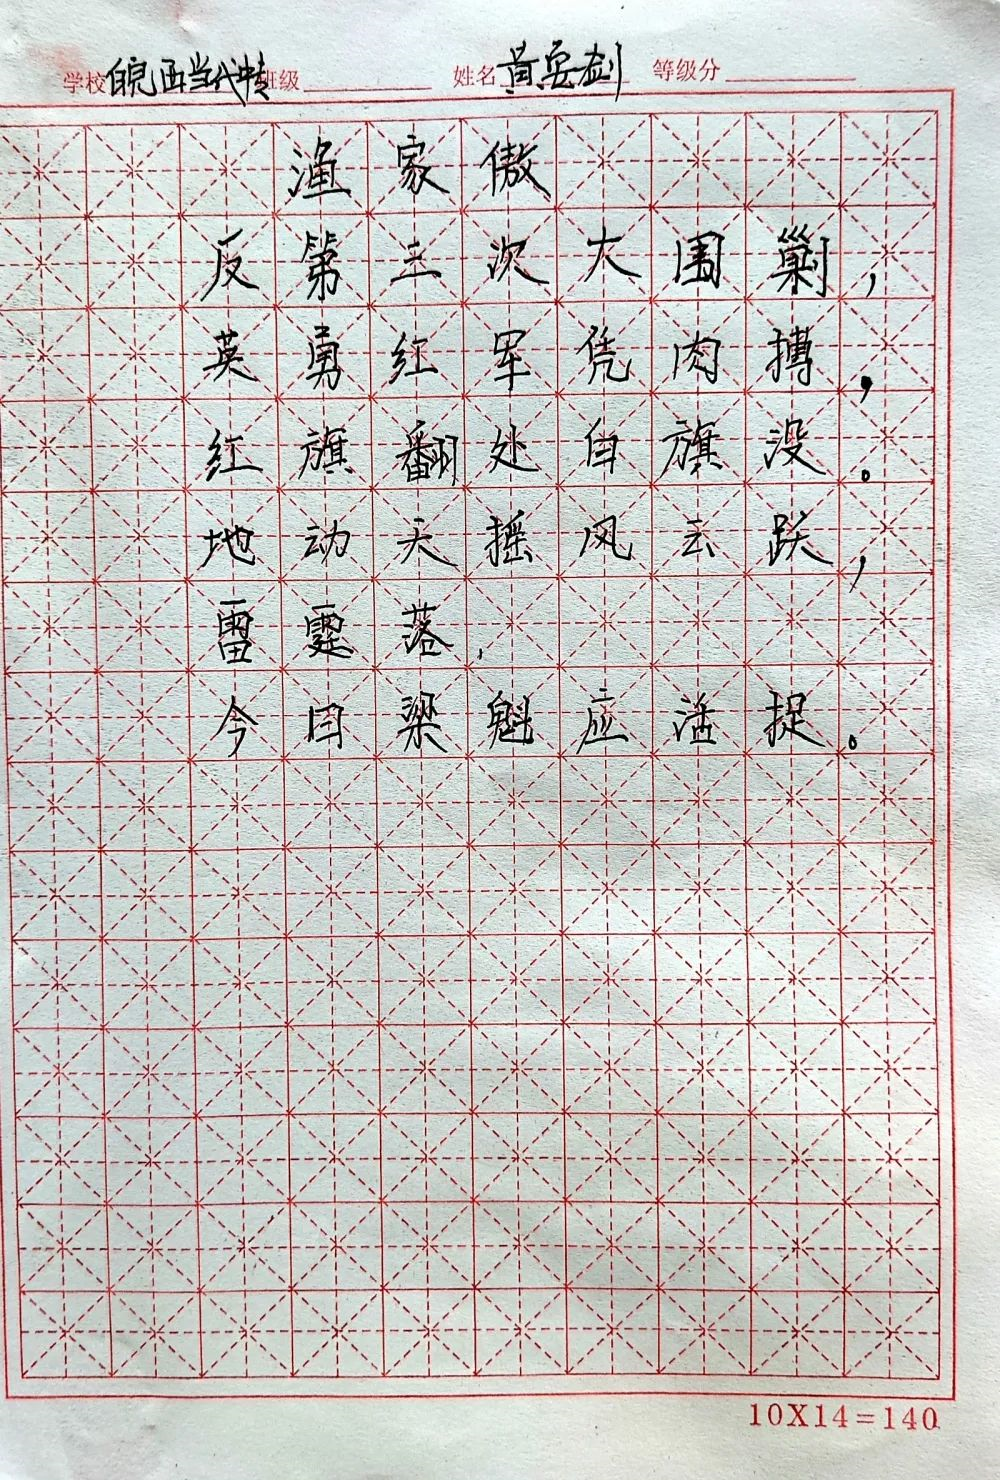 学校 皖西当代中专 班级 姓名 黄安剑 等级分
渔家傲
反第三次大围剿，
英勇红军凭肉搏，
红旗翻处白旗没。
地动天摇风云跃，
雷霆落，
今日梁魁应活捉。
10X14=140